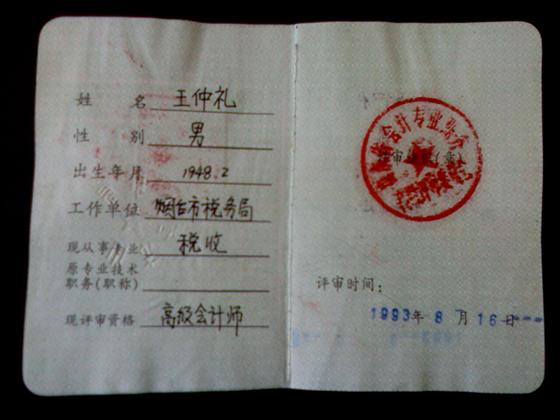 姓 名 王仲礼
性 别 男
出生年月 1948.2
工作单位 烟台市税务局
现从事专业 税收
原专业技术
职务(职称)
现评审资格 高级会计师
会计专业
评审 (章)
评审时间:
1993年 8 月 16日